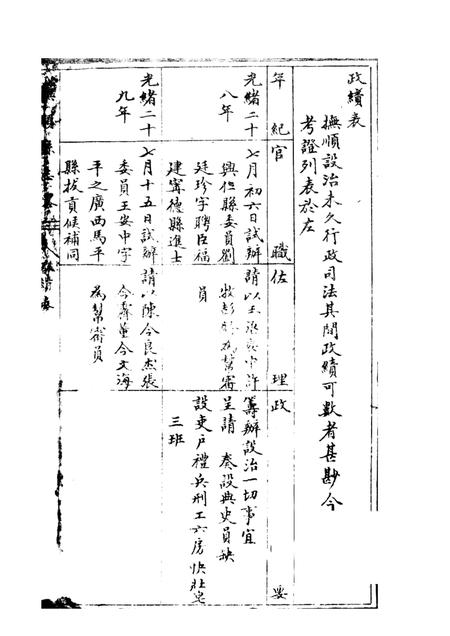 政績表
撫順設治未久行政司法其間政績可數者甚尠今
考證列表於左
年紀
官職
佐理
政要
光緒二十
八年
七月初六日試辦
興仁縣委員劉
廷珍字聘臣福
建寧德縣進士
請以王
為幫審
員
籌辦設治一切事宜
呈請 奏設典史員缺
設吏戶禮兵刑工六房快壯皂
三班
光緒二十
九年
七月十五日試辦
委員王安中字
平之廣西馬平
縣拔貢候補同
請以陳令良杰張
令霖董令文海
為幫審員